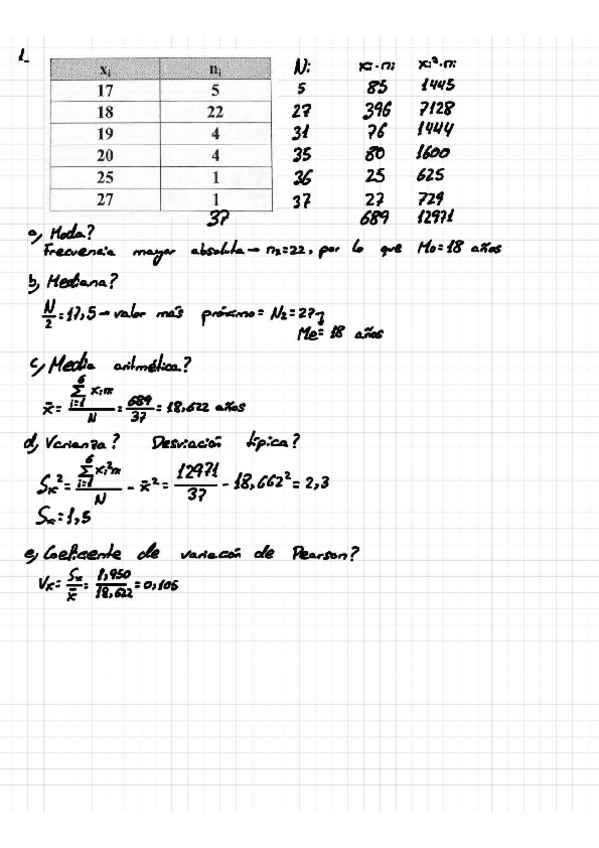 1_
xi ni Ni xi·ni xi²·ni
17 5 5 85 1445
18 22 27 396 7128
19 4 31 76 1444
20 4 35 80 1600
25 1 36 25 625
27 1 37 27 729
37 689 12971
a) Moda?
Frecuencia mayor absoluta → n2=22, por lo que Mo=18 años
b) Mediana?
N/2 = 17,5 → valor más próximo = N2=27
Me= 18 años
c) Media aritmética?
x̄ = Σ(i=1, 6) xi ni / N = 689/37 = 18,622 años
d) Varianza? Desviación típica?
Sx² = Σ(i=1, 6) xi² ni / N - x̄² = 12971/37 - 18,662² = 2,3
Sx = 1,5
e) Coeficiente de variación de Pearson?
Vx = Sx/x̄ = 1,950/18,622 = 0,105